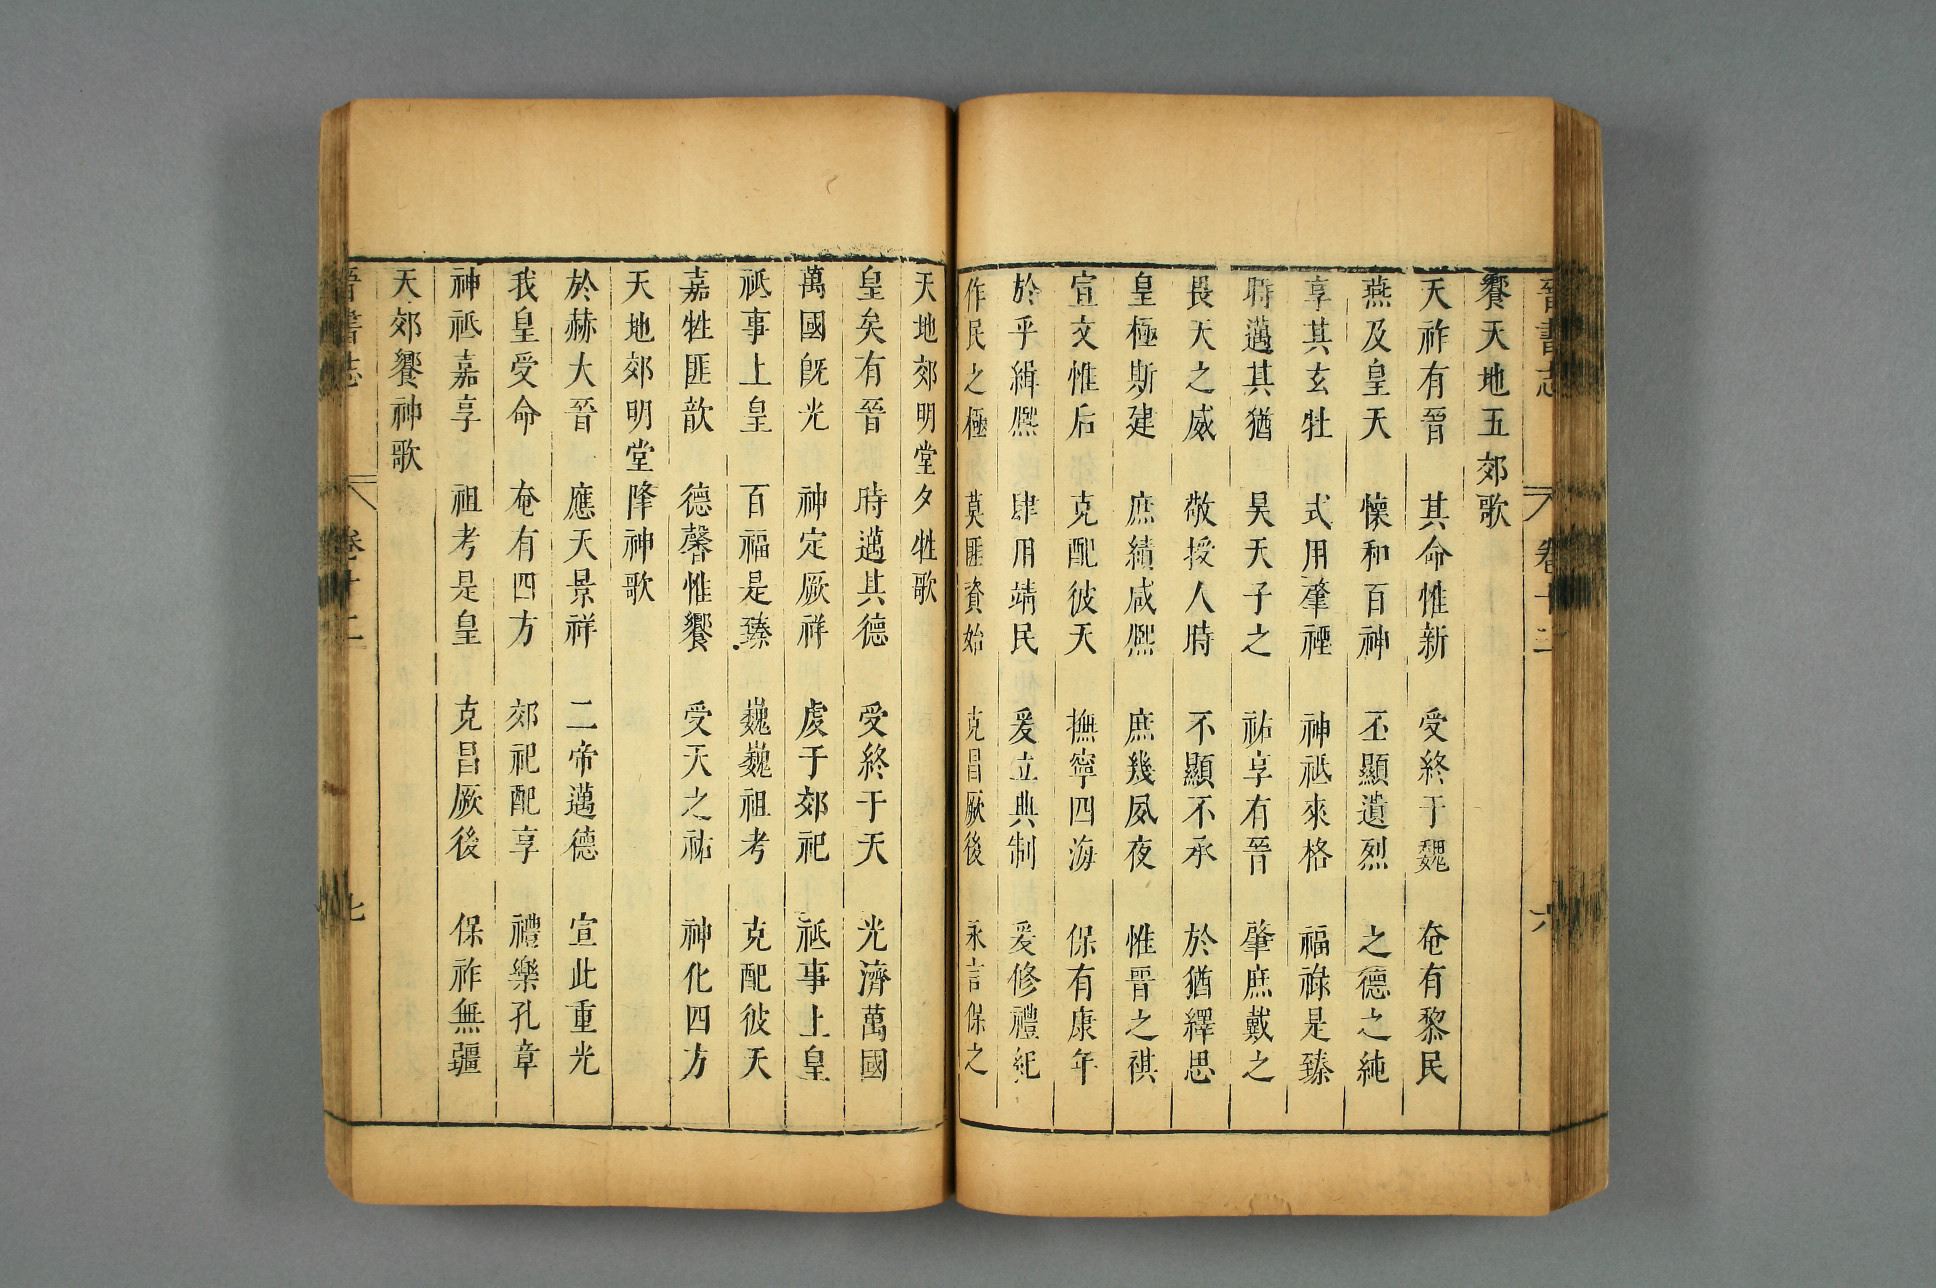 晉書志 卷十二 六
饗天地五郊歌
天祚有晉 其命惟新 受終于魏 奄有黎民
燕及皇天 懷和百神 丕顯遺烈 之德之純
享其玄牡 式用肇禋 神祗來格 福祿是臻
時邁其猶 昊天子之 祐享有晉 肇庶戴之
畏天之威 敬授人時 不顯不承 於猶繹思
皇極斯建 庶績咸熙 庶幾夙夜 惟晉之祺
宣文惟后 克配彼天 撫寧四海 保有康年
於乎緝熙 肆用靖民 爰立典制 爰修禮紀
作民之極 莫匪資始 克昌厥後 永言保之
天地郊明堂夕牲歌
皇矣有晉 時邁其德 受終于天 光濟萬國
萬國旣光 神定厥祥 虔于郊祀 祗事上皇
祗事上皇 百福是臻 巍巍祖考 克配彼天
嘉牲匪歆 德馨惟饗 受天之祐 神化四方
天地郊明堂降神歌
於赫大晉 應天景祥 二帝邁德 宣此重光
我皇受命 奄有四方 郊祀配享 禮樂孔章
神祗嘉享 祖考是皇 克昌厥後 保祚無疆
天郊饗神歌
晉書志 卷十二 七